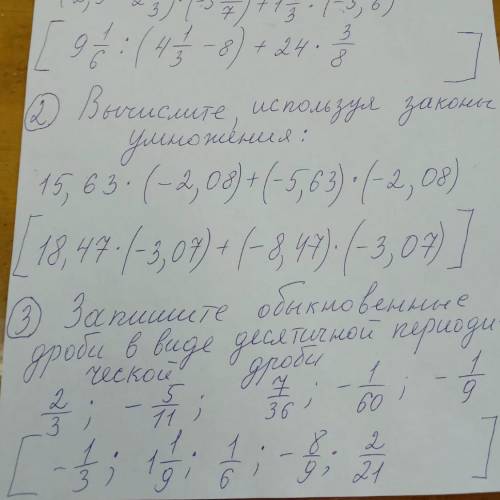 2/3) · (-3 /7) + 1 1/3 · (-3,6)
[ 9 1/6 : (4 1/3 - 8) + 24 · 3/8 ]
② Вычислите, используя законы
умножения:
15,63 · (-2,08) + (-5,63) · (-2,08)
[ 18,47 · (-3,07) + (-8,47) · (-3,07) ]
③ Запишите обыкновенные
дроби в виде десятичной периоди
ческой дроби
2/3; -5/11; 7/36; -1/60; -1/9
[ -1/3; 1 1/9; 1/6; -8/9; 2/21 ]